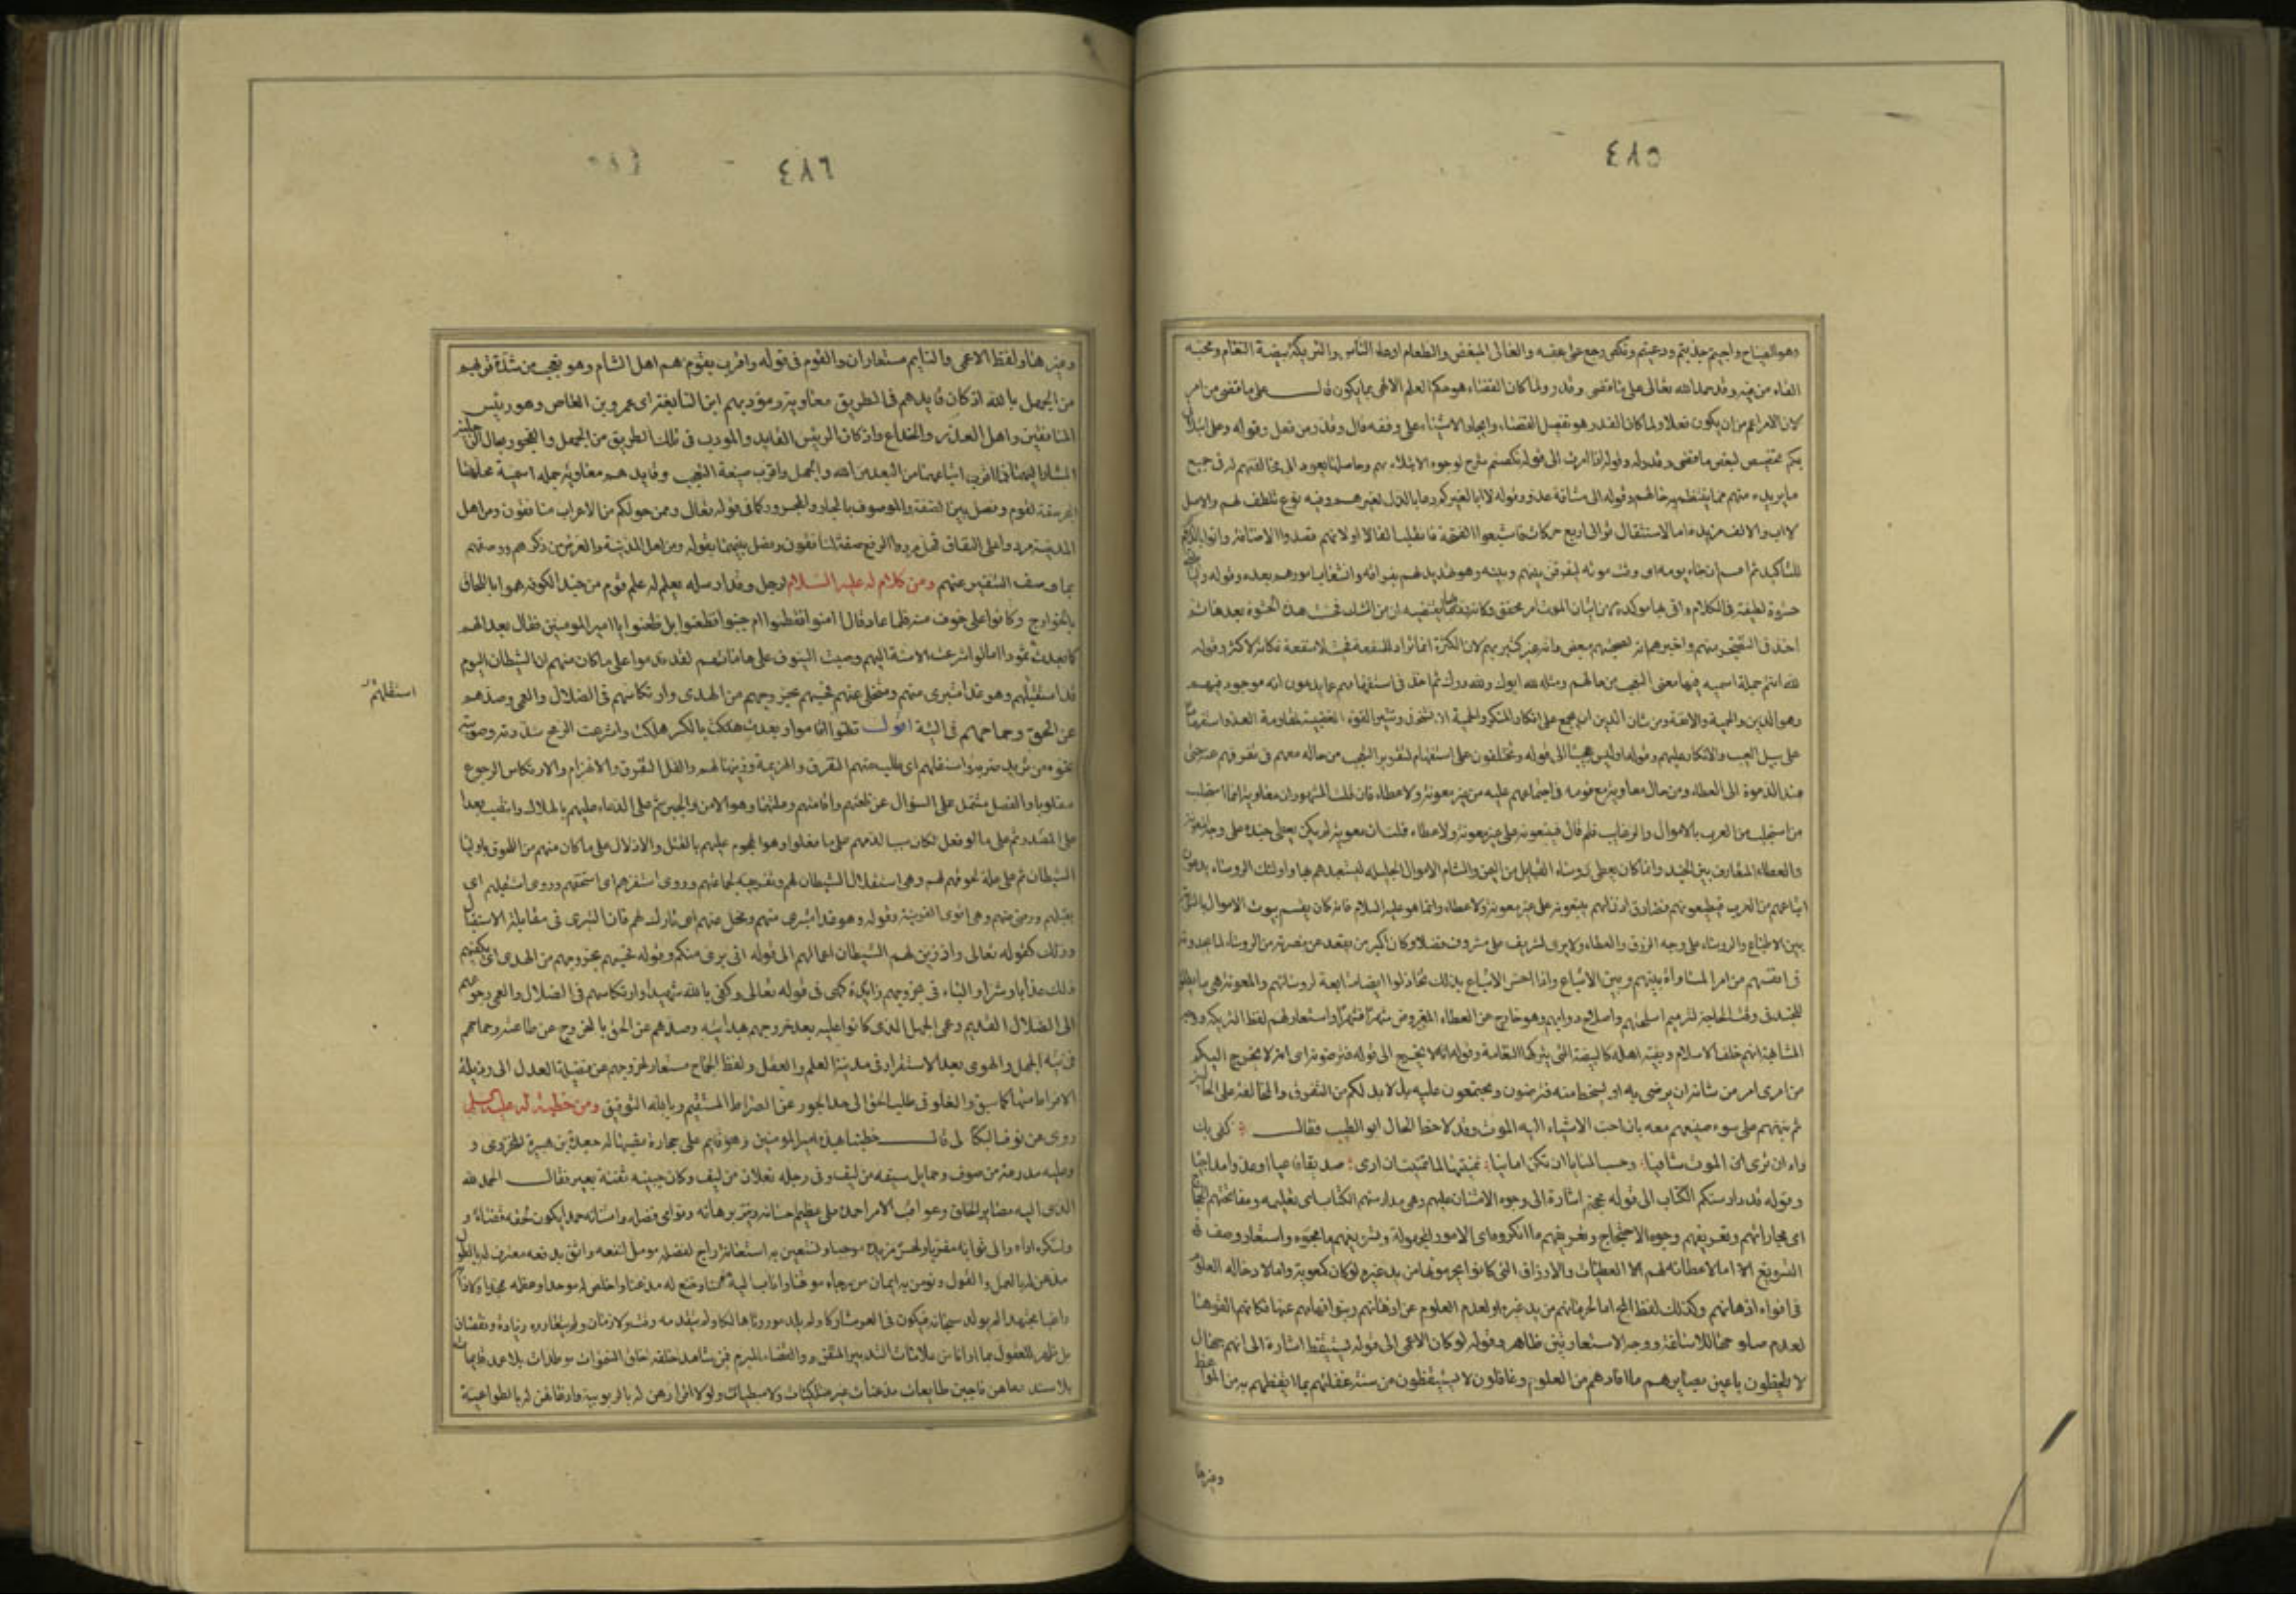 ٤٨٥
وهو الصياح واجيتم جذبتم ودعيتم ونكص رجع على عقبه والقالى المبغض والطغام اوغاد الناس والتريكة بيضة النعام ومحبه
الفاء من فيه وقد حمد الله تعالى على ما قضى وقدر ولما كان القضاء هو حكم العلم الالهى بما يكون قال على ما قضى من امر
لان الامر اعم من ان يكون فعلا ولما كان القدر هو تفصيل القضاء وايجاد الاشياء على وفقه قال وقدر من فعل وقوله وعلى ابتلائى
بكم تخصيص لبعض ما قضى وقدره وقوله اذا امرت الى قوله نكصتم شرح لوجوه الابتلاء بهم وحاصلها يعود الى مخالفتهم له فى جميع
ما يريده منهم مما ينتظم به حالهم وقوله الى مشاقة عدو وقوله لا ابا لغيركم دعا بالذل لغيرهم وفيه نوع تلطف لهم والاصل
لا اب والالف مزيدة اما لاستثقال توالى اربع حركات فاشبعوا الفتحة فانقلبت الفا او لانهم قصدوا الاضافة واتوا باللام
للتأكيد ثم اقسم ان جاء يومه اى وقت موته ليفرقن بينهم وبينه وهو تهديد لهم بفراقه وانشعاب امورهم بعده وقوله وليأتينى
حشوة لطيفة فى الكلام واتى بها مؤكدة لان اتيان الموت امر محقق وكانه
اخذ فى التضجر منهم واخبرهم انه لصحبتهم مبغض وانه غير كثير بهم لان الكثرة انما تراد للمنفعة فحيث لا منفعة فكانه لا كثرة وقوله
لله انتم جملة اسمية فيها معنى التعجب من حالهم ومثله لله ابوك ولله درك ثم اخذ فى استفهامهم عما يدعون انه موجود فيهم
وهو الدين والحمية والانفة ومن شان الدين ان يجمع على انكار المنكر والحمية ان تشحذ وتثير القوة الغضبية لمقاومة العدو استفهاما
على سبيل العيب والانكار عليهم وقوله اوليس عجبا الى قوله وتختلفون على استفهام لتقرير التعجب من حاله معهم فى تفرقهم عنه حتى
عند الدعوة الى العطاء ومن حال معاوية مع قومه فى اجتماعهم عليه من غير معونة ولا عطاء فان قلت المشهور ان معاوية انما استجلب
من استجلب من العرب بالاموال والرغايب فلم قال فيتبعونه على غير معونة ولا عطاء قلت ان معوية لم يكن يعطى جنده على وجه المعونة
والعطاء المتعارف بين الجند وانما كان يعطى رؤساء القبايل من اليمن والشام الاموال الجليلة ليستعبدهم بها واولئك الرؤساء يدعون
اتباعهم من العرب فيطيعونهم فصادق انهم يتبعونه على غير معونة ولا عطاء واما هو عليه السلام فانه كان يقسم بيوت الاموال بالسوية
بين الاتباع والرؤساء على وجه الرزق والعطاء ولا يرى لشريف على مشروف فضلا وكان اكثر من يقعد عن نصرته من الرؤساء لما يجدونه
فى انفسهم من امر المساواة بينهم وبين الاتباع واذا احس الاتباع بذلك تخاذلوا ايضا متابعة لرؤسائهم والمعونة هى ما يعطى
للجند فى وقت الحاجة لترميم اسلحتهم واصلاح دوابهم وهو خارج عن العطاء المفروض شهرا فشهرا واستعار لهم لفظ التريكة ووجه
المشابهة انهم خلف الاسلام وبقية اهله كالبيضة التى يتركها النعامة وقوله انه لا يخرج الى قوله فترضونه اى انه لا يخرج اليكم
من امرى امر من شانه ان يرضى به او يسخط منه فترضون وتجتمعون عليه بل لا بد لكم من التفرق والمخالفة على الحالين
ثم نبههم على سوء صنيعهم معه بان احب الاشياء اليه الموت وقد لاحظ الحال ابو الطيب فقال كفى بك
داء ان ترى الموت شافيا وحسب المنايا ان تكن امانيا تمنيتها لما تمنيت ان ارى صديقا فاعيا او عدوا مداجيا
وقوله قد دارستكم الكتاب الى قوله مججتم اشارة الى وجوه الامتنان عليهم وهى مدارستهم الكتاب اى تعليمه ومفاتحتهم الحجاج
اى مجاراتهم وتعريفهم وجوه الاحتجاج وتعريفهم ما انكروه اى الامور المجهولة وتسويغهم ما مجوه واستعار وصف
التسويغ اما لاعطائه لهم العطيات والارزاق التى كانوا يحرمونها من يد غيره لو كان كمعوية واما لادخاله العلوم
فى افواه اذهانهم وكذلك لفظ المج اما لحرمانهم من يد غيره او لعدم العلوم عن اذهانهم ونبو افهامهم عنها فكانهم القوها
لعدم صلوحها للاساغة ووجه الاستعارتين ظاهر وقوله لو كان الاعمى الى قوله يستيقظ اشارة الى انهم جهال
لا يلحظون باعين بصايرهم ما افادهم من العلوم وغافلون لا يستيقظون من سنة غفلتهم بما ايقظهم به من المواعظ
وغيرها
٤٨٦
وغيرها ولفظ الاعمى والنايم مستعاران والقوم فى قوله واقرب بقوم هم اهل الشام وهو تعجب من شدة قربهم
من الجهل بالله اذ كان قايدهم فى الطريق معاوية ومؤدبهم ابن النابغة اى عمرو بن العاص وهو رئيس
المنافقين واهل الغدر والخداع واذ كان الرئيس القايد والمودب فى تلك الطريق من الجهل والفجور بحال الرجلين
المشار اليهما فما اقرب اتباعهما من البعد من الله والجهل واقرب صيغة التعجب وقايدهم معاوية جملة اسمية محلها
الجر صفة لقوم وفصل بين الصفة والموصوف بالجار والمجرور كما فى قوله تعالى وممن حولكم من الاعراب منافقون ومن اهل
المدينة مردوا على النفاق فمحل مردوا الرفع صفة لمنافقون وفصل بينهما بقوله ومن اهل المدينة والغرض من ذكرهم ووصفهم
بما وصف التنفير عنهم ومن كلام له عليه السلام لرجل وقد ارسله يعلم له علم قوم من جند الكوفة هموا باللحاق
بالخوارج وكانوا على خوف منه فلما عاد قال اامنوا فقطنوا ام جبنوا فظعنوا بل ظعنوا يا امير المومنين فقال بعدا لهم
كما بعدت ثمود اما لو اشرعت الاسنة اليهم وصبت السيوف على هاماتهم لقد ندموا على ما كان منهم ان الشيطان اليوم
قد استقبلهم وهو غدا متبرى منهم ومتخلى عنهم فحسبهم بخروجهم من الهدى وارتكاسهم فى الضلال والعمى وصدهم
استفلهم
عن الحق وجماحهم فى التيه اقول قطنوا اقاموا وبعدت بالكسر هلكت واشرعت الرمح سددته وصوبته
نحو من تريد ضربه واستفلهم اى طلب منهم التفرق والهزيمة وزينها لهم والفل التفرق والانهزام والارتكاس الرجوع
مقلوبا والفصل مشتمل على السؤال عن ظعنهم واقامتهم وعلتهما وهو الامن والجبن ثم على الدعاء عليهم بالهلاك وانتصب بعدا
على المصدر ثم على ما لو فعل لكان سببا لندمهم على ما فعلوا وهو الهجوم عليهم بالقتل والاذلال على ما كان منهم من اللحوق باولياء
الشيطان ثم على علة لحوقهم لهم وهى استفلال الشيطان لهم وتفريقه لجماعتهم وروى استفزهم اى استخفهم وروى استقبلهم اى
يقبلهم ورضى منهم وهى اقوى القرينة وقوله وهو غدا متبرى منهم ومتخل عنهم اى تارك لهم فان التبرى فى مقابلة الاستقبال
وذلك كقوله تعالى واذ زين لهم الشيطان اعمالهم الى قوله انى برئ منكم وقوله فحسبهم بخروجهم من الهدى اى يكفيهم
ذلك عذابا وشرا والباء فى بخروجهم زايدة كهى فى قوله تعالى وكفى بالله شهيدا وارتكاسهم فى الضلال والعمى رجوعهم
الى الضلال القديم وعمى الجهل الذى كانوا عليه بعد خروجهم منه وصدهم عن الحق بالخروج عن طاعته وجماحهم
فى تيه الجهل والهوى بعد الاستقرار فى مدينة العلم والعقل ولفظ الجماح مستعار لخروجهم عن فضيلة العدل الى رذيلة
الافراط منها كما سبق والغلو فى طلب الحق الى حد الجور عن الصراط المستقيم وبالله التوفيق ومن خطبة له عليه السلام
روى عن نوف البكالى قال خطبنا هذه امير المومنين وهو قايم على حجارة نصبها له جعدة بن هبيرة المخزومى و
وعليه مدرعة من صوف وحمايل سيفه من ليف وفى رجله نعلان من ليف وكان جبينه ثفنة بعير فقال الحمد لله
الذى اليه مصاير الخلق وعواقب الامر احمده على عظيم احسانه ونير برهانه ونوامى فضله وامتنانه حمدا يكون لحقه قضاء و
ولشكره اداء والى ثوابه مقربا ولحسن مزيده موجبا ونستعين به استعانة راج لفضله مومل لنفعه واثق بدفعه معترف له بالطول
مذعن له بالعمل والقول ونومن به ايمان من رجاه موقنا واناب اليه مومنا وخنع له مذعنا واخلص له موحدا وعظمه ممجدا ولاذ به
راغبا مجتهدا لم يولد سبحانه فيكون فى العز مشاركا ولم يلد فيكون موروثا هالكا ولم يتقدمه وقت ولا زمان ولم يتعاوره زيادة ونقصان
بل ظهر للعقول بما ارانا من علامات التدبير المتقن والقضاء المبرم فمن شواهد خلقه خلق السموات موطدات بلا عمد قايمات
بلا سند دعاهن فاجبن طايعات مذعنات غير متلكئات ولا مبطيات ولولا اقرارهن له بالربوبية واذعانهن له بالطواعية